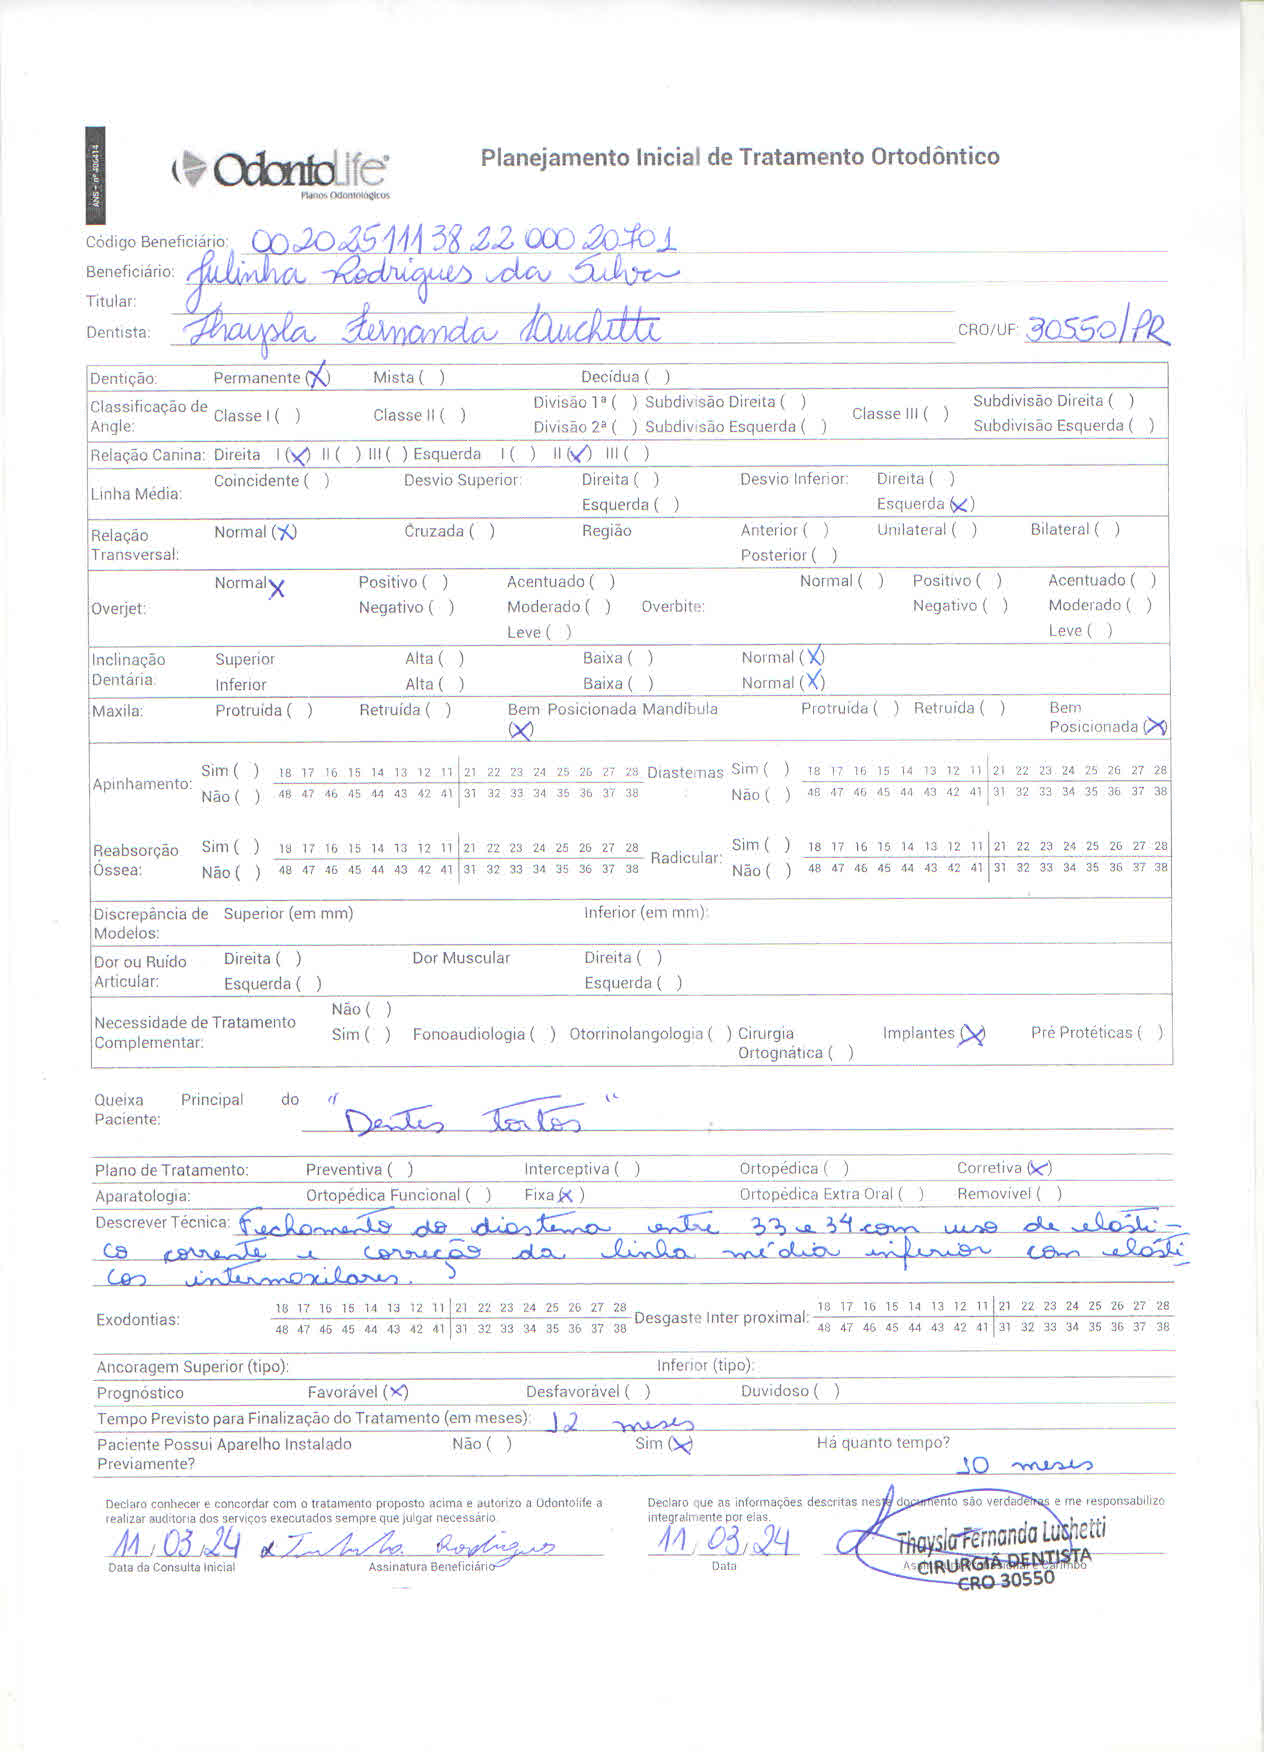 ANS - nº 406414
OdontoLife
Planos Odontológicos
Planejamento Inicial de Tratamento Ortodôntico
Código Beneficiário: 0020251113822 000 20701
Beneficiário: Julinha Rodrigues da Silva
Titular:
Dentista: Thaysla Fernanda Luchetti CRO/UF: 30550/PR
Dentição: Permanente (X) Mista ( ) Decídua ( )
Classificação de Angle: Classe I ( ) Classe II ( ) Divisão 1ª ( ) Subdivisão Direita ( ) Classe III ( ) Subdivisão Direita ( )
Divisão 2ª ( ) Subdivisão Esquerda ( ) Subdivisão Esquerda ( )
Relação Canina: Direita I (X) II ( ) III ( ) Esquerda I ( ) II (X) III ( )
Linha Média: Coincidente ( ) Desvio Superior: Direita ( ) Desvio Inferior: Direita ( )
Esquerda ( ) Esquerda (X)
Relação Transversal: Normal (X) Cruzada ( ) Região Anterior ( ) Unilateral ( ) Bilateral ( )
Posterior ( )
Normal X Positivo ( ) Acentuado ( ) Normal ( ) Positivo ( ) Acentuado ( )
Overjet: Negativo ( ) Moderado ( ) Overbite: Negativo ( ) Moderado ( )
Leve ( ) Leve ( )
Inclinação Dentária: Superior Alta ( ) Baixa ( ) Normal (X)
Inferior Alta ( ) Baixa ( ) Normal (X)
Maxila: Protruída ( ) Retruída ( ) Bem Posicionada (X) Mandíbula Protruída ( ) Retruída ( ) Bem Posicionada (X)
Apinhamento: Sim ( ) 18 17 16 15 14 13 12 11 21 22 23 24 25 26 27 28 Diastemas : Sim ( ) 18 17 16 15 14 13 12 11 21 22 23 24 25 26 27 28
Não ( ) 48 47 46 45 44 43 42 41 31 32 33 34 35 36 37 38 Não ( ) 48 47 46 45 44 43 42 41 31 32 33 34 35 36 37 38
Reabsorção Óssea: Sim ( ) 18 17 16 15 14 13 12 11 21 22 23 24 25 26 27 28 Radicular: Sim ( ) 18 17 16 15 14 13 12 11 21 22 23 24 25 26 27 28
Não ( ) 48 47 46 45 44 43 42 41 31 32 33 34 35 36 37 38 Não ( ) 48 47 46 45 44 43 42 41 31 32 33 34 35 36 37 38
Discrepância de Modelos: Superior (em mm) Inferior (em mm):
Dor ou Ruído Articular: Direita ( ) Dor Muscular Direita ( )
Esquerda ( ) Esquerda ( )
Necessidade de Tratamento Complementar: Não ( )
Sim ( ) Fonoaudiologia ( ) Otorrinolangologia ( ) Cirurgia Ortognática ( ) Implantes (X) Pré Protéticas ( )
Queixa Principal do Paciente: "Dentes Tortos"
Plano de Tratamento: Preventiva ( ) Interceptiva ( ) Ortopédica ( ) Corretiva (X)
Aparatologia: Ortopédica Funcional ( ) Fixa (X) Ortopédica Extra Oral ( ) Removível ( )
Descrever Técnica: Fechamento do diastema entre 33 e 34 com uso de elásti-
co corrente e correção da linha média inferior com elásti
cos intermaxilares.
Exodontias: 18 17 16 15 14 13 12 11 21 22 23 24 25 26 27 28 Desgaste Inter proximal: 18 17 16 15 14 13 12 11 21 22 23 24 25 26 27 28
48 47 46 45 44 43 42 41 31 32 33 34 35 36 37 38 48 47 46 45 44 43 42 41 31 32 33 34 35 36 37 38
Ancoragem Superior (tipo): Inferior (tipo):
Prognóstico Favorável (X) Desfavorável ( ) Duvidoso ( )
Tempo Previsto para Finalização do Tratamento (em meses): 12 meses
Paciente Possui Aparelho Instalado Previamente? Não ( ) Sim (X) Há quanto tempo? 10 meses
Declaro conhecer e concordar com o tratamento proposto acima e autorizo a Odontolife a
realizar auditoria dos serviços executados sempre que julgar necessário.
Declaro que as informações descritas neste documento são verdadeiras e me responsabilizo
integralmente por elas.
11/03/24 Rodrigues 11/03/24
Data da Consulta Inicial Assinatura Beneficiário Data
Thaysla Fernanda Lushetti
CIRURGIÃ DENTISTA
CRO 30550